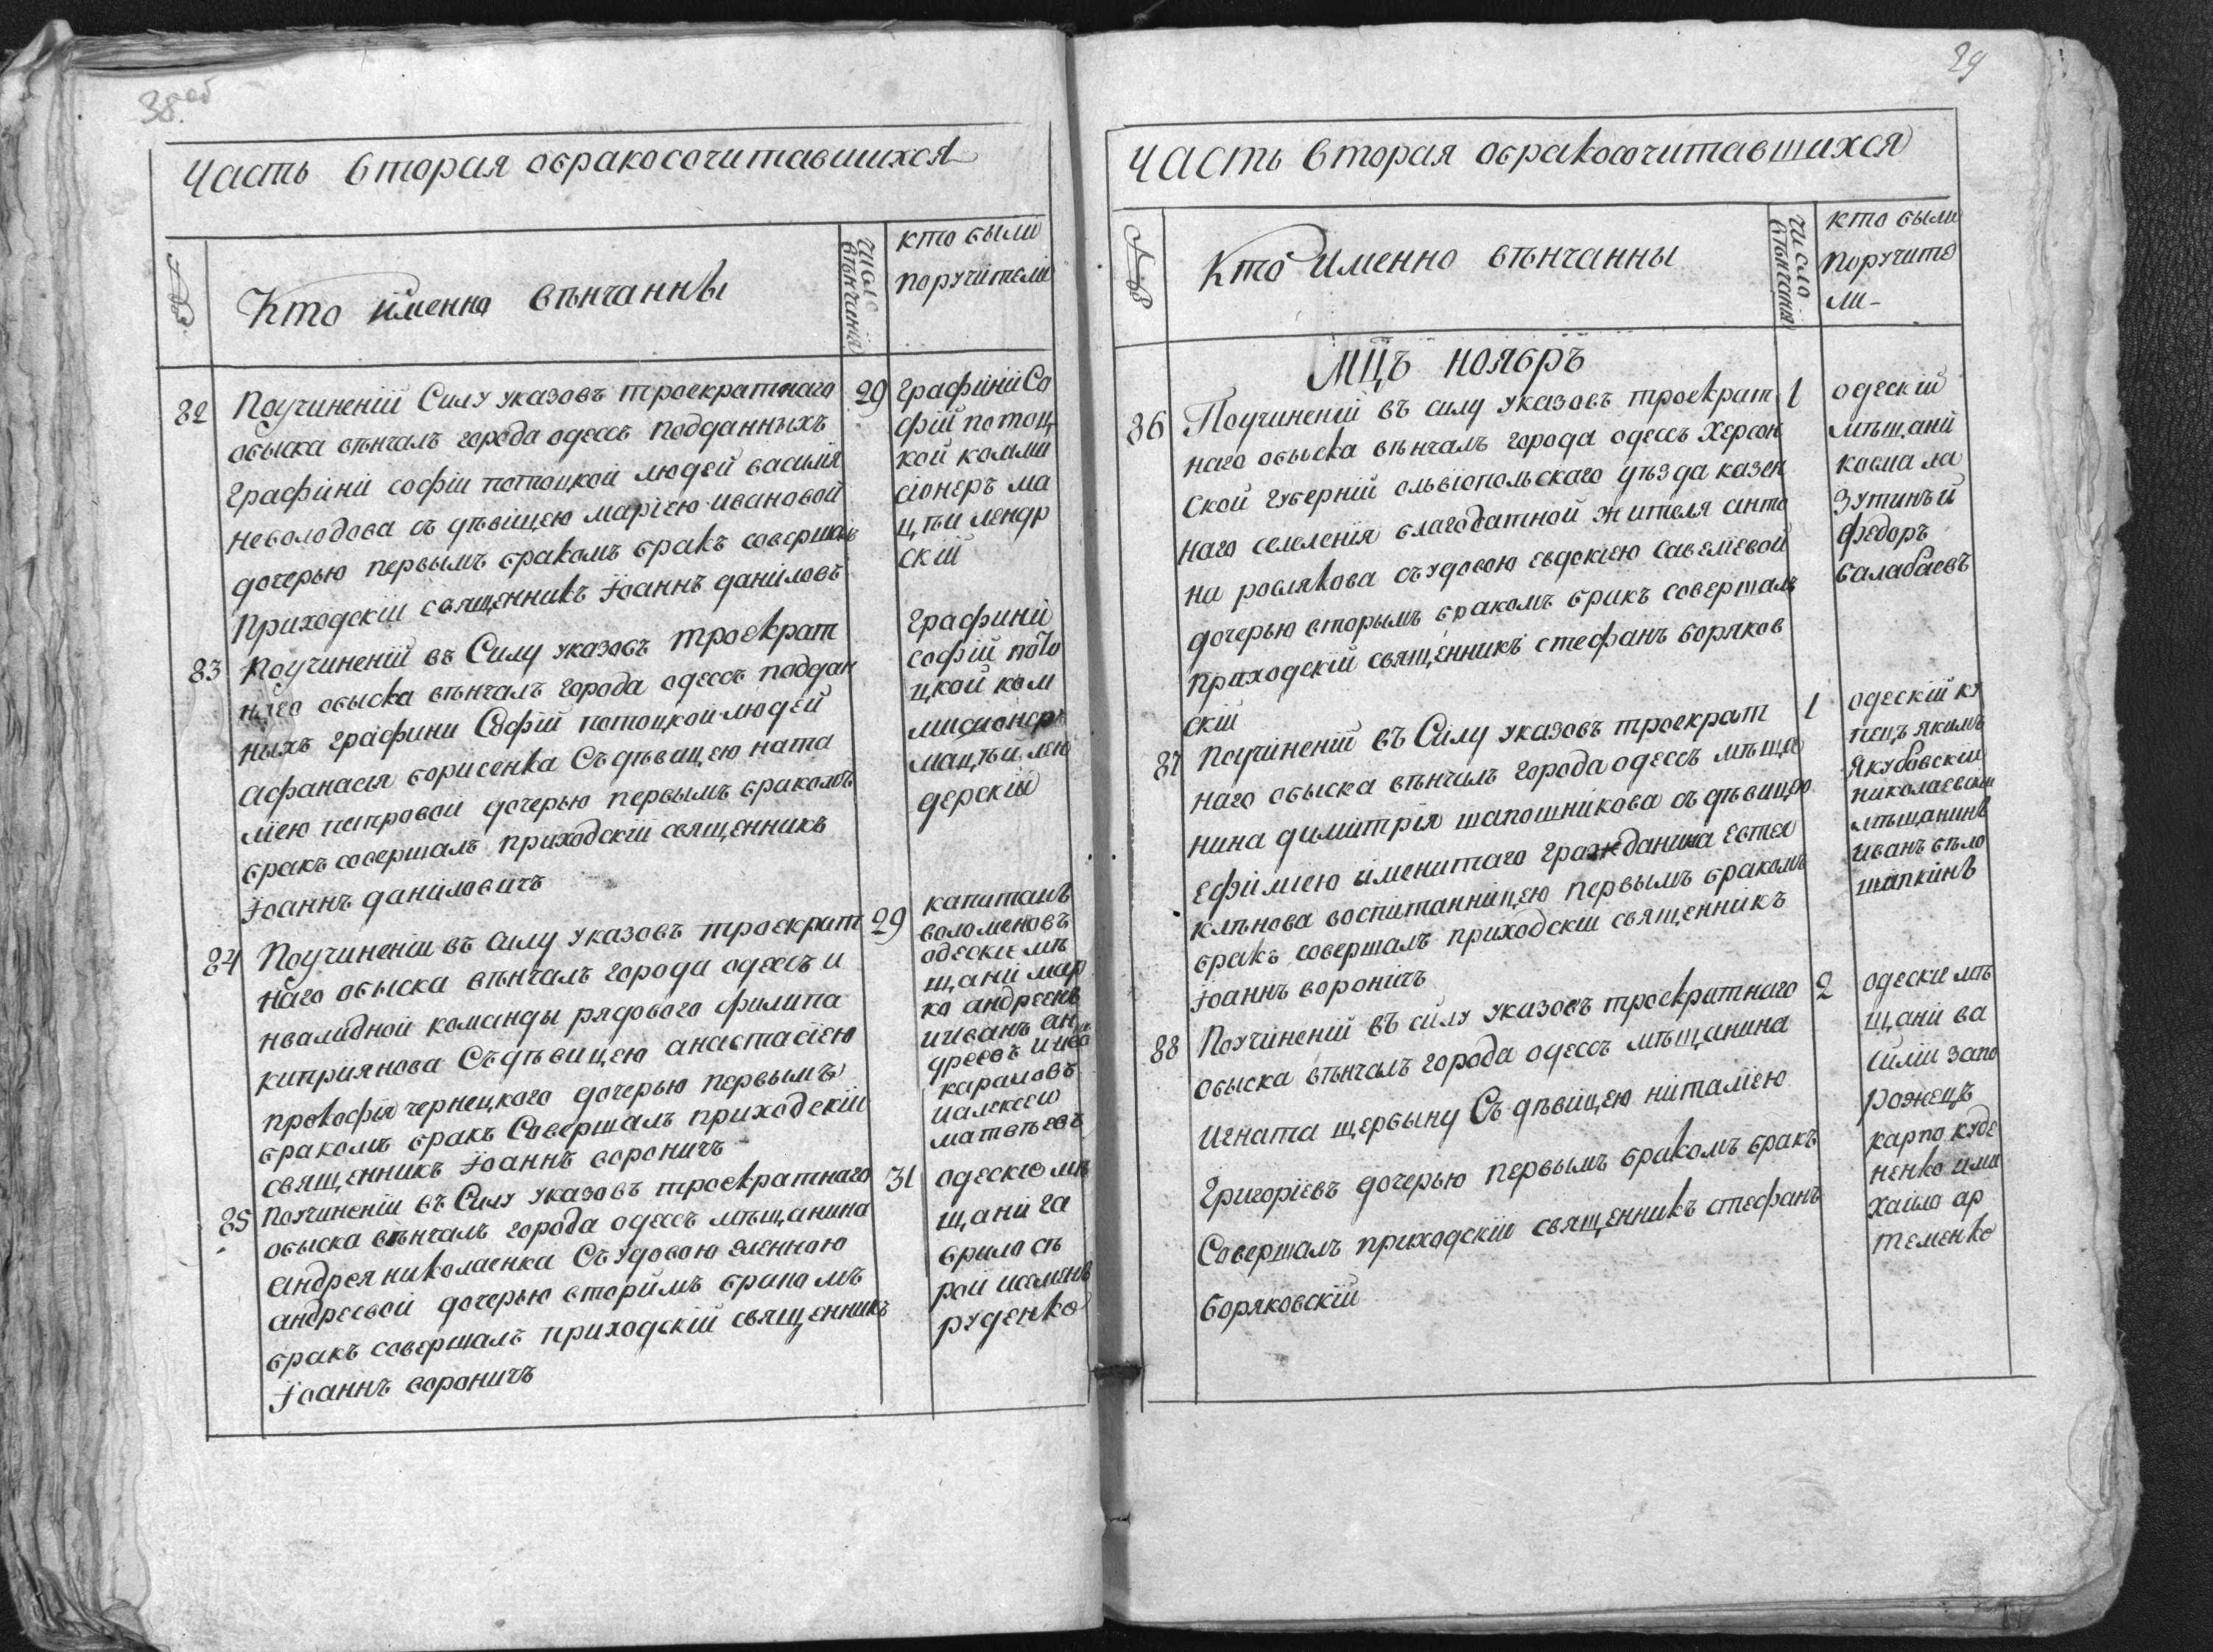 38 об
Часть вторая обракосочитавшихся
№
Кто именно вѣнчанны
число вѣнчанія
кто были
поручители
82
Поучиненій Силу указовъ троекратнаго
обыска вѣнчалъ города одессъ подданныхъ
графіни софіи потоцкой людей василія
неволодова съ дѣвіцею маріею ивановой
дочерью первымъ бракомъ бракъ совершалъ
Приходскій священникъ Іоаннъ даніловъ
29
Графіній Со
фій потоц
кой комми
сіонеръ ма
цѣи лендр
скій
83
Поучиненій въ Силу указовъ троекрат
наго обыска вѣнчалъ города одессъ поддан
ныхъ графини Софій потоцкой людей
Афанасія борисенка Съ дѣвицею ната
ліею петровой дочерью первымъ бракомъ
бракъ совершалъ приходскій священникъ
Іоаннъ даніловичъ
графиній
софій пото
цкой ком
мисионеръ
мацѣи лен
дерскій
84
Поучиненіи въ силу указовъ троекрат
наго обыска вѣнчалъ города одессъ и
нвалидной команды рядового филипа
киприянова Съ дѣвицею анастасіею
прокофія чернецкого дочерью первымъ
бракомъ бракъ Совершалъ приходскій
священникъ Іоаннъ вороничъ
29
капитанъ
воломеновъ
одескіе мѣ
щані мар
ко андреевъ
и иванъ ан
дреевъ и
караловъ
и алексей
матвѣевъ
85
Поучиненіи въ Силу указовъ троекратнаго
обыска вѣнчалъ города одессъ мѣщанина
Андрея николаенка Съ удовою еленною
андреевой дочерью вторимъ бракомъ
бракъ совершалъ приходскій священникъ
Іоаннъ вороничъ
31
одескіе мѣ
щані га
врило сѣ
рой и семенъ
руденко
29
Часть вторая обракосочитавшихся
№
Кто именно вѣнчанны
число вѣнчанія
кто были
поручите
ли-
МЦЪ ноябръ
86
Поучиненій въ силу указовъ троекрат
наго обыска вѣнчалъ города одессъ Херсон
ской губерній ольвіопольскаго уѣзда казен
наго селеленія благодатной жителя анто
на ровлякова съ удовою евдокіею савеліевой
дочерью вторымъ бракомъ бракъ совершалъ
приходскій священникъ стефанъ боряков
скій
1
одескій
мѣщаній
косма ла
зутинъ й
федоръ
балабаевъ
87
Поучіненій въ Сілу указовъ троекрат
наго обыска вѣнчалъ города одессъ мѣща
нина димитрія шапошникова съ дѣвицею
Ефіміею именитаго гражданина Евтея
клѣнова воспитанніцею первымъ бракомъ
бракъ совершалъ приходскій священникъ
Іоаннъ воронічъ
1
одескій ку
пецъ якимъ
Якубовскій
николаевскій
мѣщанинъ
иванъ бѣло
шапкинъ
88
Поучиненій въ силу указовъ троекратнаго
обыска вѣнчалъ города одессъ мѣщанина
Игната щербину Съ дѣвіцею наталіею
Григоріевъ дочерью первымъ бракомъ бракъ
Совершалъ приходскій священникъ стефанъ
боряковскій
2
одескіе мѣ
щані ва
силій запо
рожецъ
карпо кубе
ненко и ми
хайло ар
теменко